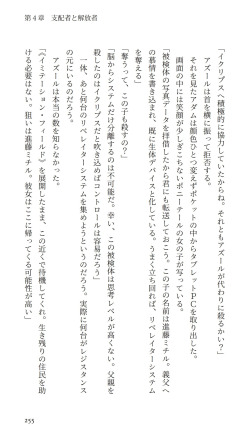 第４章　支配者と解放者
「イクリプスへ積極的に協力していたからね。それともアズールが代わりに殺るかい？」
アズールは首を横に振って拒否する。
それを見たアダムは顔色ひとつ変えずポケットの中からタブレットＰＣを取り出した。
画面の中には笑顔が少しぎこちないポニーテールの女の子が写っている。
「被検体の写真データを拝借したから君にも転送しておこう。この子の名前は進藤ミチル。義父への慕情を書き込まれ、既に生体デバイスと化している。うまく立ち回れば、リベレイターシステムを奪えるだろう」
「奪うって、この子も殺すの？」
「脳からシステムだけ分離するのは不可能だ。幸い、この被検体は思考レベルが高くない。父親を殺したのはイクリプスだと吹き込めばコントロールは容易だろう」
一体、あと何台のリベレイターシステムを集めようというのだろう。実際に何台がレジスタンスの元にいるのだろう。
アズールは本当の数を知らなかった。
「《イグナイテーション・フィールド》を展開したまま、この近くで待機してくれ。生き残りの住民を助ける必要はない。狙いは進藤ミチル。彼女はここに帰ってくる可能性が高い」
255